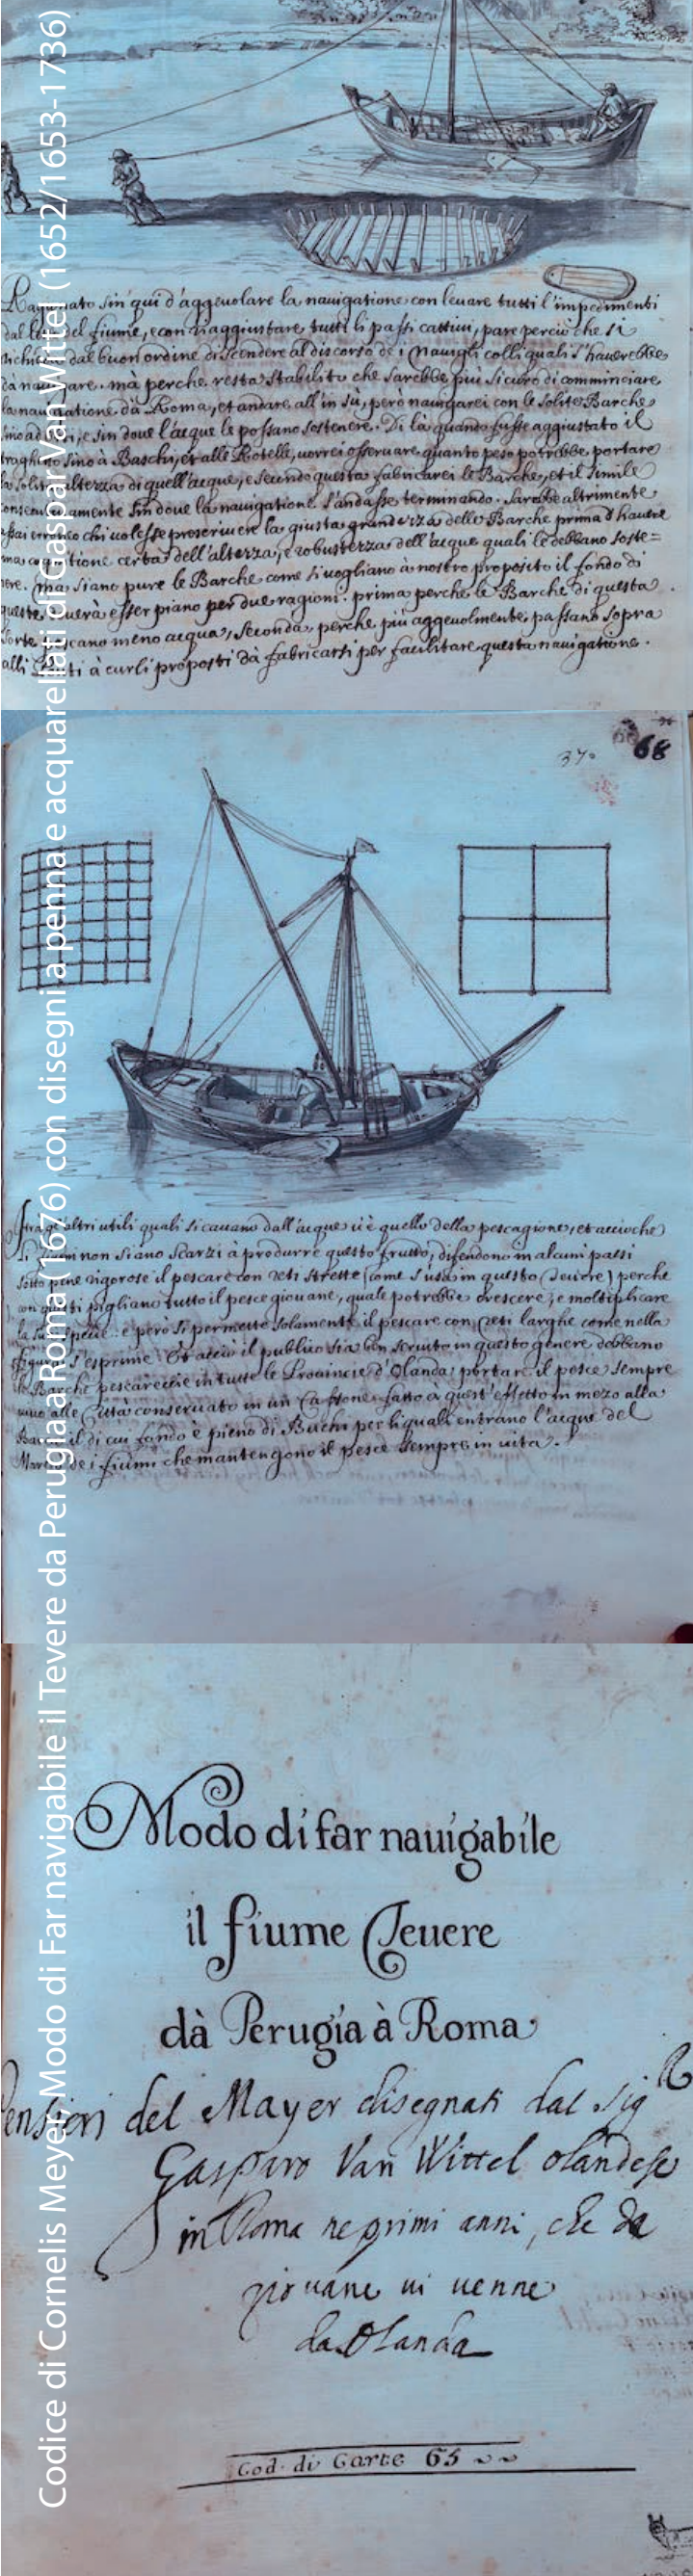 Codice di Cornelis Meyer, Modo di Far navigabile il Tevere da Perugia a Roma 1676) con disegni a penna e acquarellati di Caspar Van Wittel (1652/1653-1736)
sin qui d'aggeuolare la nauigatione con leuare tutti l'impedimenti
del fiume, e con riaggiustare tutti li passi cattiui, pare perciò che si
dal buon ordine di scendere al discorso de i Nauigli colli quali s'hauerebbe
dà nauigare. mà perche resta stabilito che sarebbe più sicuro di comminciare
la nauigatione dà Roma, et andare all'in sù, però nauigarei con le solite Barche
e sin doue l'acque le possano sostenere. Di là quando fusse aggiustato il
sino à Baschi, et alle Rotelle, uorrei osseruare quanto peso potrebbe portare
la solita altezza di quell'acque, e secundo questa fabricarei le Barche, et il simile
sin doue la nauigatione s'andasse terminando. Sarebbe altrimente
erroneo chi uolesse prescriuere la giusta grandezza delle Barche prima d'hauere
cognitione certa dell'altezza, e robustezza dell'acque quali le debbano soste=
nere. Ma siano pure le Barche come si uogliano à nostro proposito il fondo di
queste douerà esser piano per due ragioni. prima perche le Barche di questa
sorte pescano meno acqua, Seconda, perche più aggeuolmente passano sopra
alli à curli proposti dà fabricarsi per facilitare questa nauigatione.
370
68
altri utili quali si cauano dall'acque ui è quello della pescagione, et accioche
non siano scarzi à produrre questo frutto, difendono in alcuni paesi
sotto pene rigorose il pescare con reti strette (come s'usa in questo Teuere) perche
con questi pigliano tutto il pesce giouane, quale potrebbe crescere, e moltiplicare
la sua specie. e però si permette solamente il pescare con reti larghe come nella
figura s'esprime. Et acciò il publico sia ben seruito in questo genere debbano
le Barche pescareccie in tutte le Prouincie d'Olanda portare il pesce sempre
uiuo alle Città conseruato in un Cassone fatto a quest'effetto in mezo alla
Barca il di cui fondo è pieno di Buchi per li quali entrano l'acque del
Mare, ò de i fiumi che mantengono il pesce sempre in uita.
Modo di far nauigabile
il fiume Teuere
dà Perugia à Roma
Pensieri del Mayer disegnati dal Sig
Gasparo Van Wittel olandese
in Roma ne primi anni, che da
giouane ui uenne
da Olanda
Cod. di Carte 65